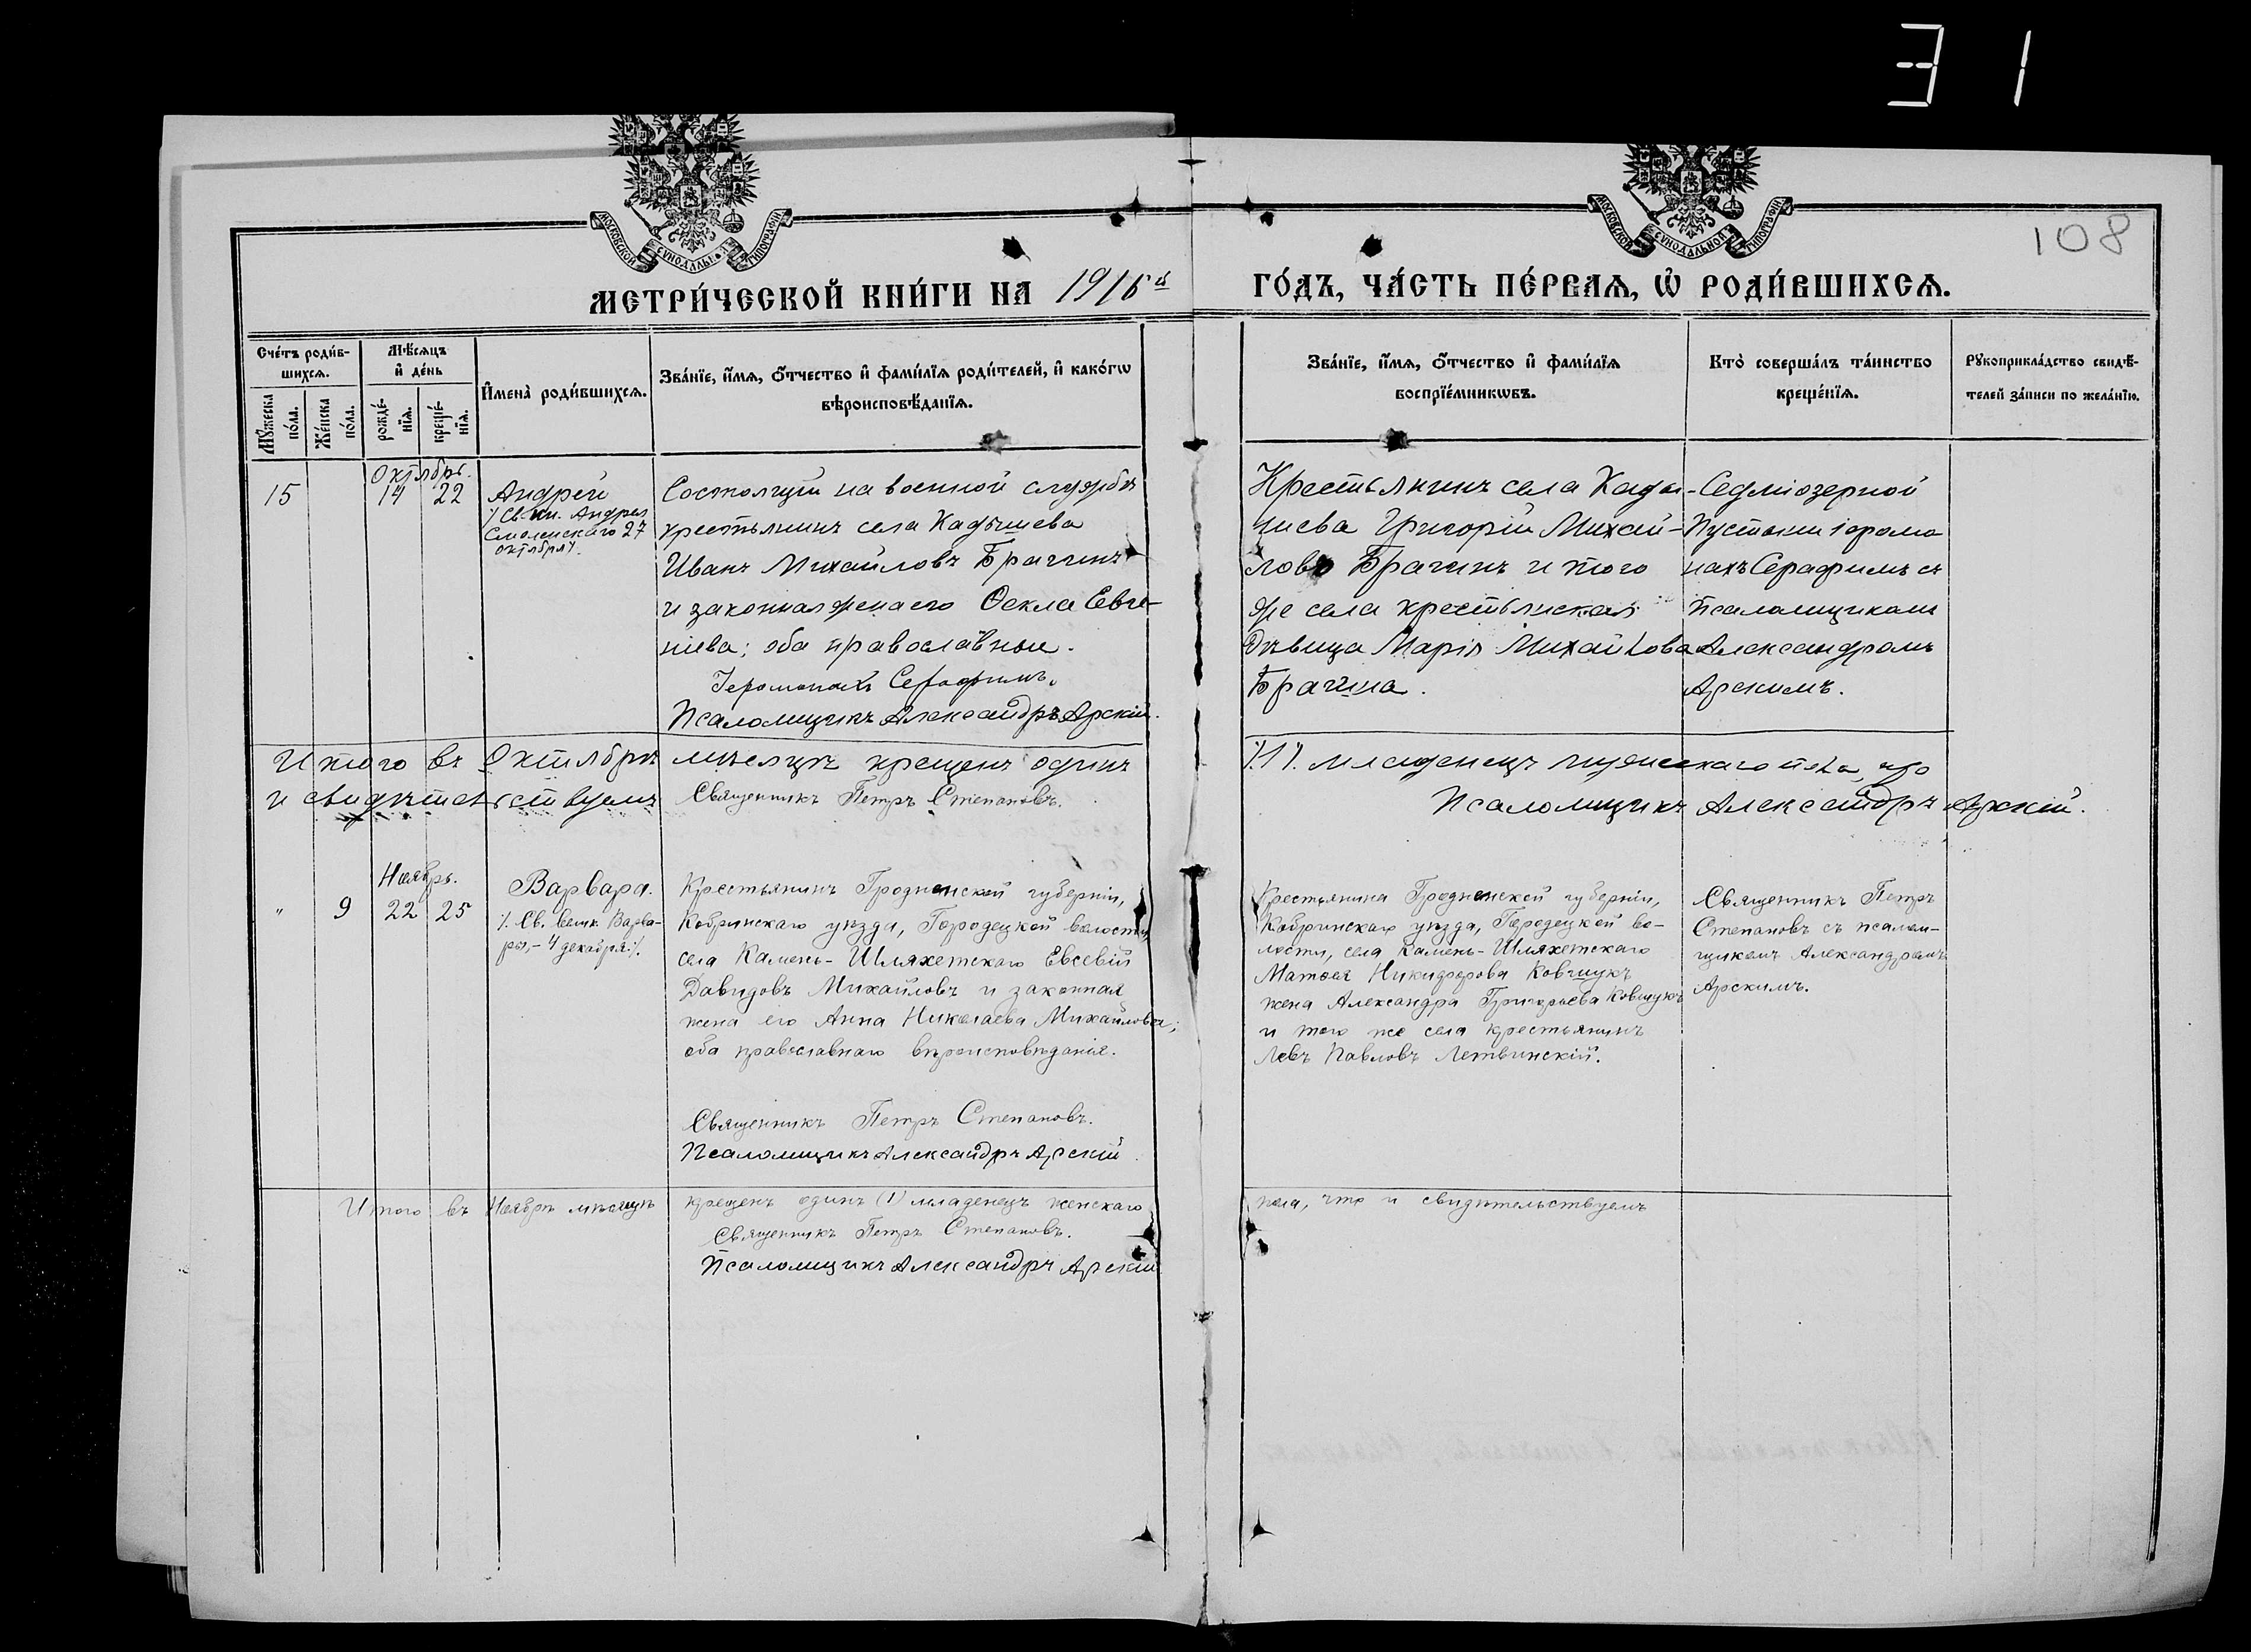 Ǝ 1
108
МОСКОВСКОЙ СУНОДАЛЬНОЙ ТИПОГРАФІИ
МОСКОВСКОЙ СУНОДАЛЬНОЙ ТИПОГРАФІИ
МЕТРИ́ЧЕСКОЙ КНИ́ГИ НА 1916й ГО́ДЪ, ЧА́СТЬ ПЕ́РВАЯ, Ѡ РОДИ́ВШИХСЯ.
Сче́тъ роди́в-
шихся.
Мѣ́сяцъ
и де́нь
Му́жеска
по́ла.
Же́нска
по́ла.
рожде́-
нія.
креще́-
нія.
Имена̀ роди́вшихся.
Зва́ніе, и́мя, о́тчество и фами́лія роди́телей, и како́гѡ
вѣроисповѣ́данія.
Зва́ніе, и́мя, о́тчество и фами́лія
воспріе́мникѡвъ.
Кто̀ соверша́лъ та́инство
креще́нія.
Рукоприкла́дство свидѣ́-
телей за́писи по жела́нію.
Октябрь.
15 14 22
Андрей
/Св. кн. Андрея
Смоленскаго 27
октября/.
Состоящій на военной службѣ
крестьянинъ села Кадышева
Иванъ Михайловъ Брагинъ
и законная жена его Ѳекла Евге-
ніева; оба православные.
Іеромонахъ Серафимъ.
Псаломщикъ Александръ Арскій.
Крестьянинъ села Кады-
шева Григорій Михай-
ловъ Брагинъ и того
же села крестьянская
дѣвица Марія Михайлова
Брагина.
Седміозерной
Пустыни іеромо
нахъ Серафимъ съ
псаломщикомъ
Александромъ
Арскимъ.
Итого въ Октябрѣ мѣсяцѣ крещенъ одинъ /.1/. младенецъ мужескаго пола, что
и свидѣтельствуемъ Священникъ Петръ Степановъ. Псаломщикъ Александръ Арскій.
Ноябрь.
" 9 22 25
Варвара.
/. Св. велик. Варва-
ры,- 4 декабря/.
Крестьянинъ Гродненской губерніи,
Кобринскаго уѣзда, Городецкой волости,
села Камень-Шляхетскаго Евсевій
Давидовъ Михайловъ и законная
жена его Анна Николаева Михайлова;
оба православнаго вѣроисповѣданія.
Священникъ Петръ Степановъ.
Псаломщикъ Александръ Арскій.
Крестьянина Гродненской губерніи,
Кобринскаго уѣзда, Городецкой во-
лости, села Камень-Шляхетскаго
Матѳея Никифорова Ковшукъ
жена Александра Григорьева Ковшукъ
и того же села крестьянинъ
Левъ Павловъ Летвинскій.
Священникъ Петръ
Степановъ съ псалом-
щикомъ Александромъ
Арскимъ.
Итого въ Ноябрѣ мѣсяцѣ крещенъ одинъ (1) младенецъ женскаго пола, что и свидѣтельствуемъ
Священникъ Петръ Степановъ.
Псаломщикъ Александръ Арскій